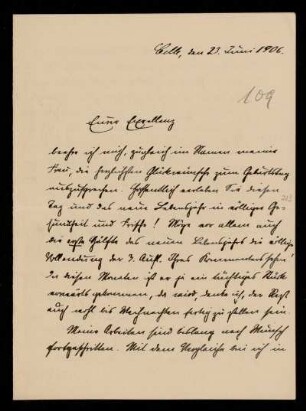 Celle, den 21. Juni 1906.
109
Eure Exzellenz
beehre ich mich, zugleich im Namen meiner
Frau, die herzlichsten Glückwünsche zum Geburtstag
auszusprechen. Hoffentlich verleben Sie diesen
Tag und das neue Lebensjahr in völliger Ge-
sundheit und Frische! Möge vor allem auch
die erste Hälfte des neuen Lebensjahres die völlige
Vollendung der 3. Aufl. Ihres Kommentars sehen!
In diesen Monaten ist er ja ein tüchtiges Stück
vorwärts gekommen, da wird, denke ich, der Rest
auch wohl bis Weihnachten fertig zu stellen sein.
Meine Arbeiten sind bislang nach Wunsch
fortgeschritten. Mit dem Vergleiche bin ich in